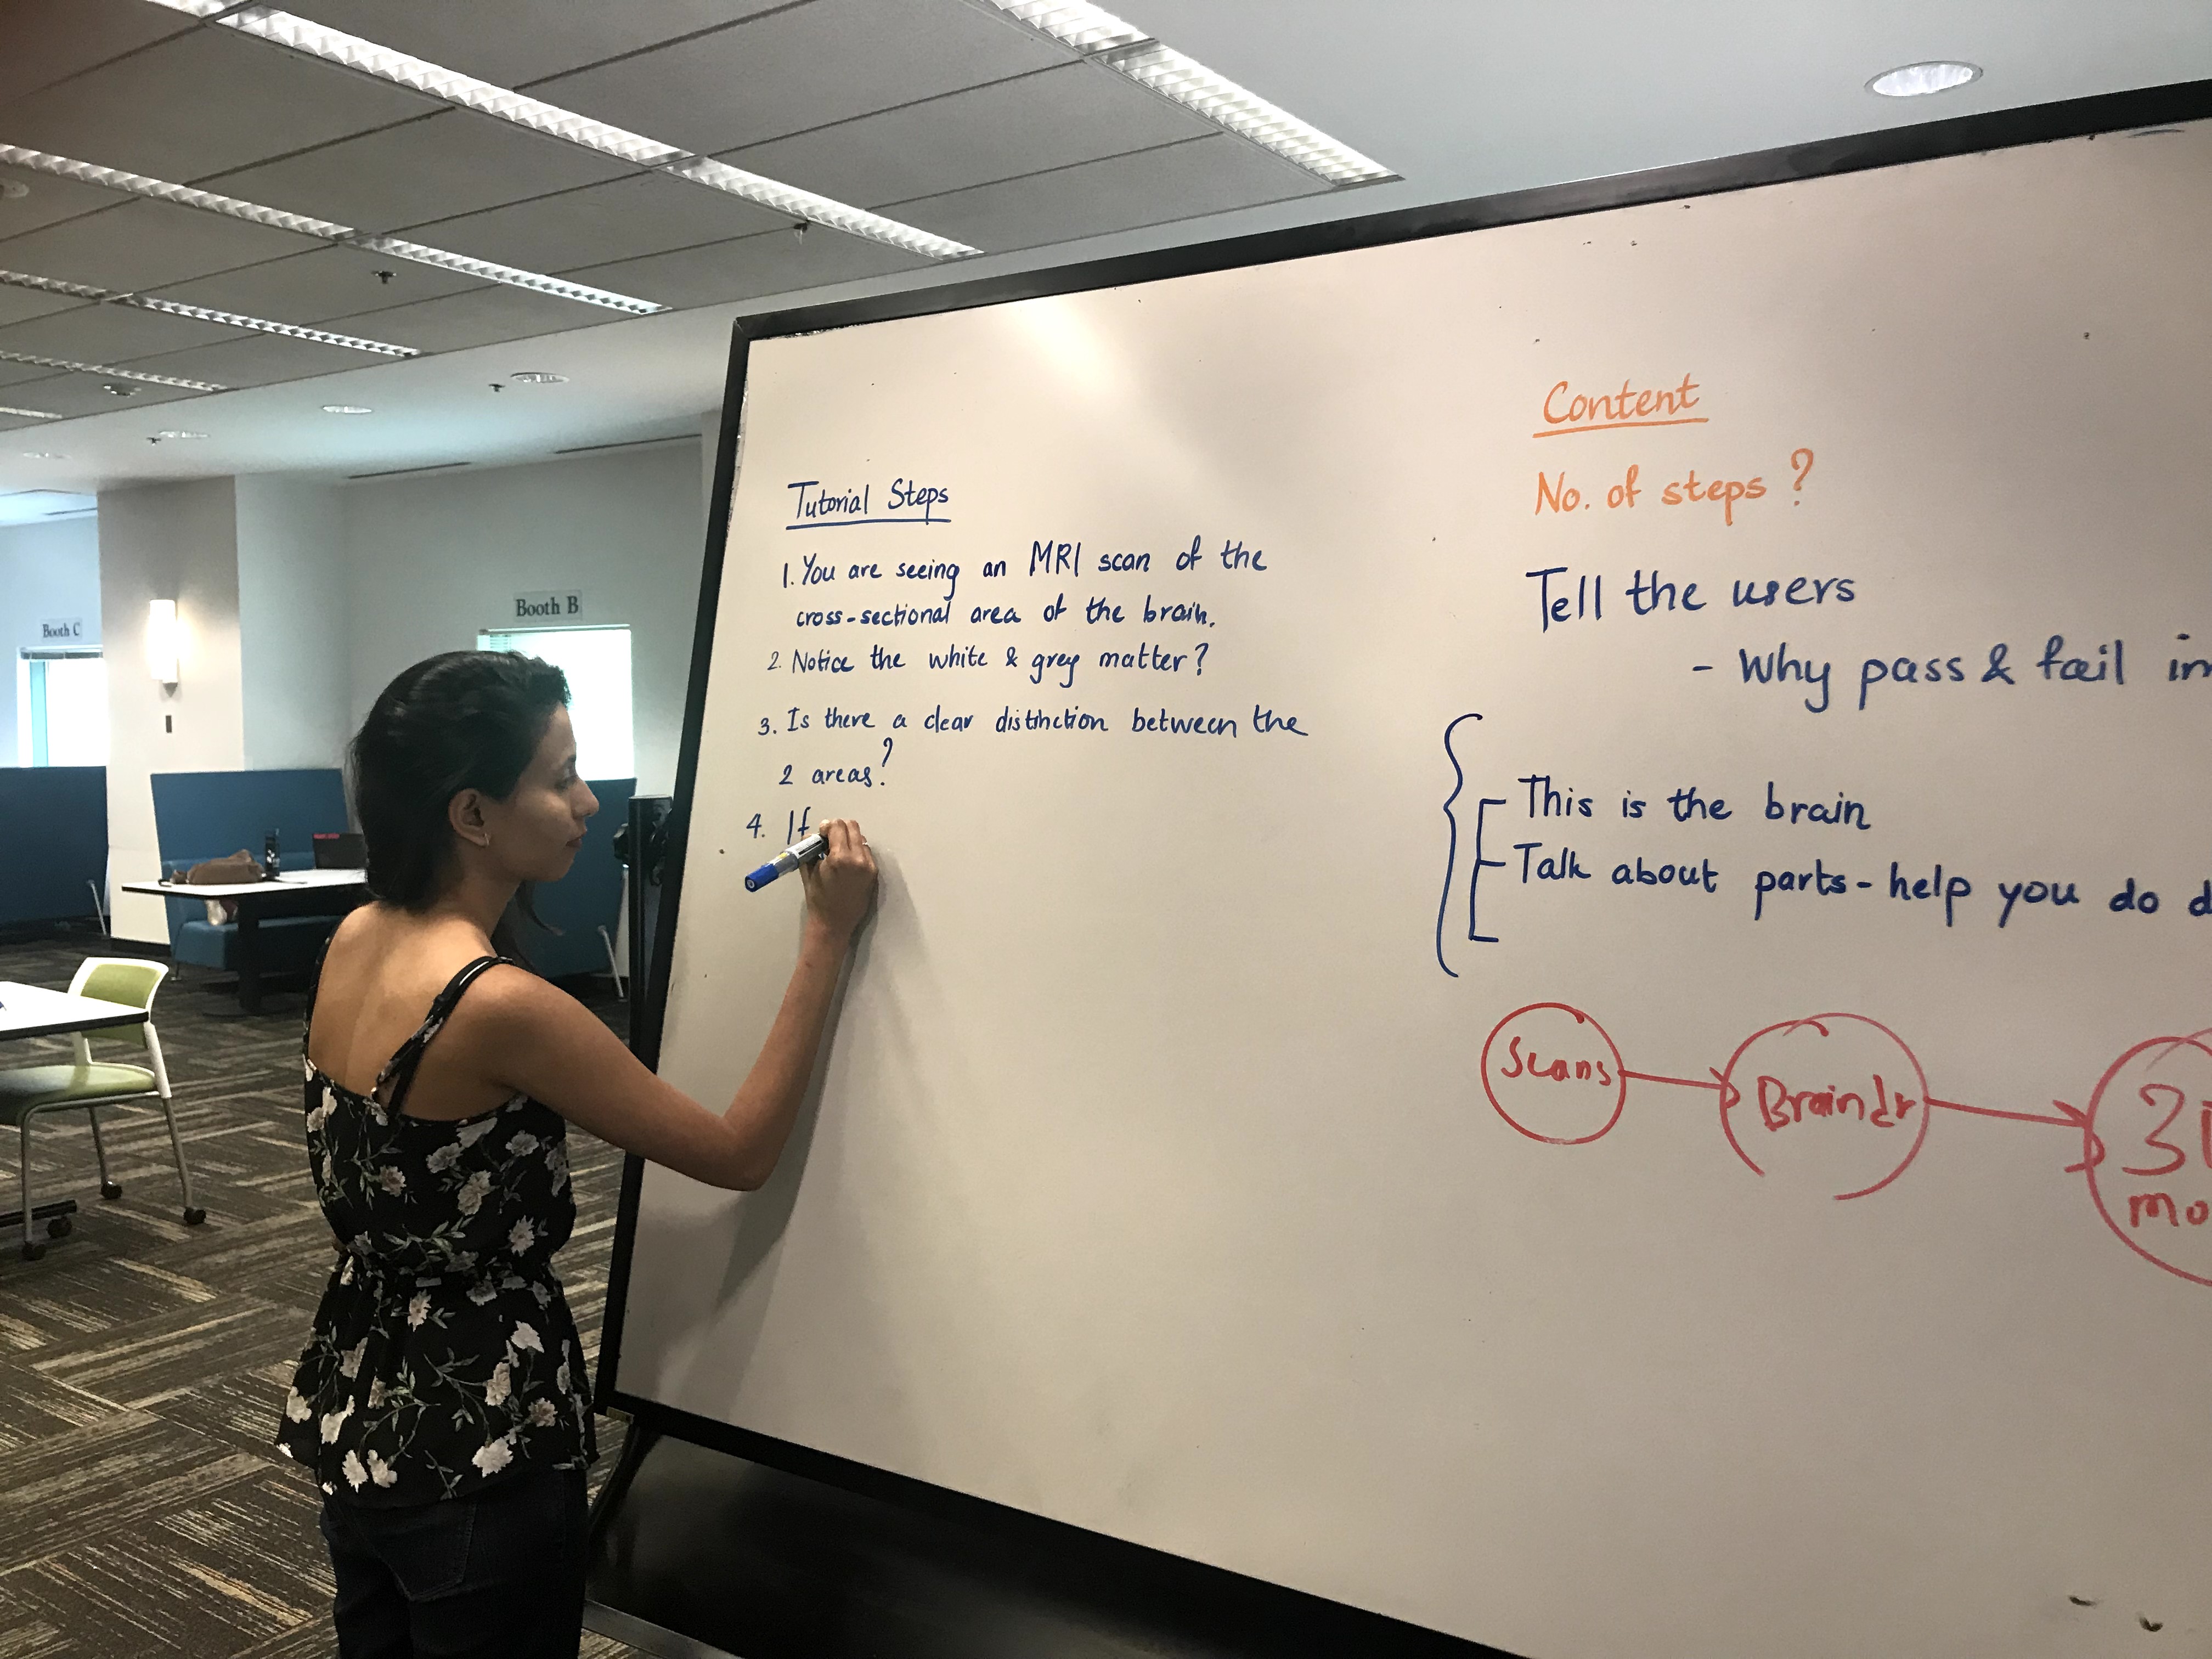 Booth C
Booth B
Tutorial Steps
1. You are seeing an MRI scan of the
cross-sectional area of the brain.
2. Notice the white & grey matter?
3. Is there a clear distinction between the
2 areas?
4. If
Content
No. of steps?
Tell the users
- Why pass & fail in
This is the brain
Talk about parts - help you do d
Scans
Braindr
3D
mo